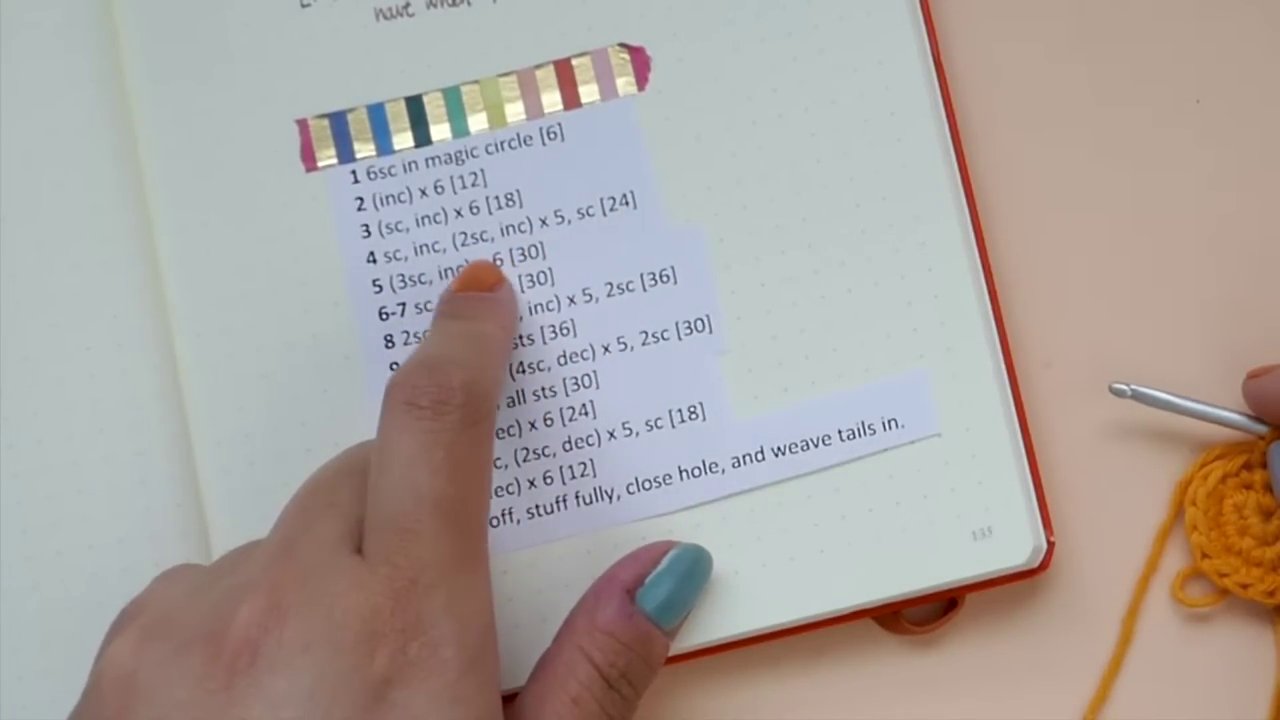 have when
1 6sc in magic circle [6]
2 (inc) x 6 [12]
3 (sc, inc) x 6 [18]
4 sc, inc, (2sc, inc) x 5, sc [24]
5 (3sc, inc) 6 [30]
6-7 sc [30]
8 2sc , inc) x 5, 2sc [36]
sts [36]
(4sc, dec) x 5, 2sc [30]
, all sts [30]
ec) x 6 [24]
c, (2sc, dec) x 5, sc [18]
ec) x 6 [12]
off, stuff fully, close hole, and weave tails in.
135